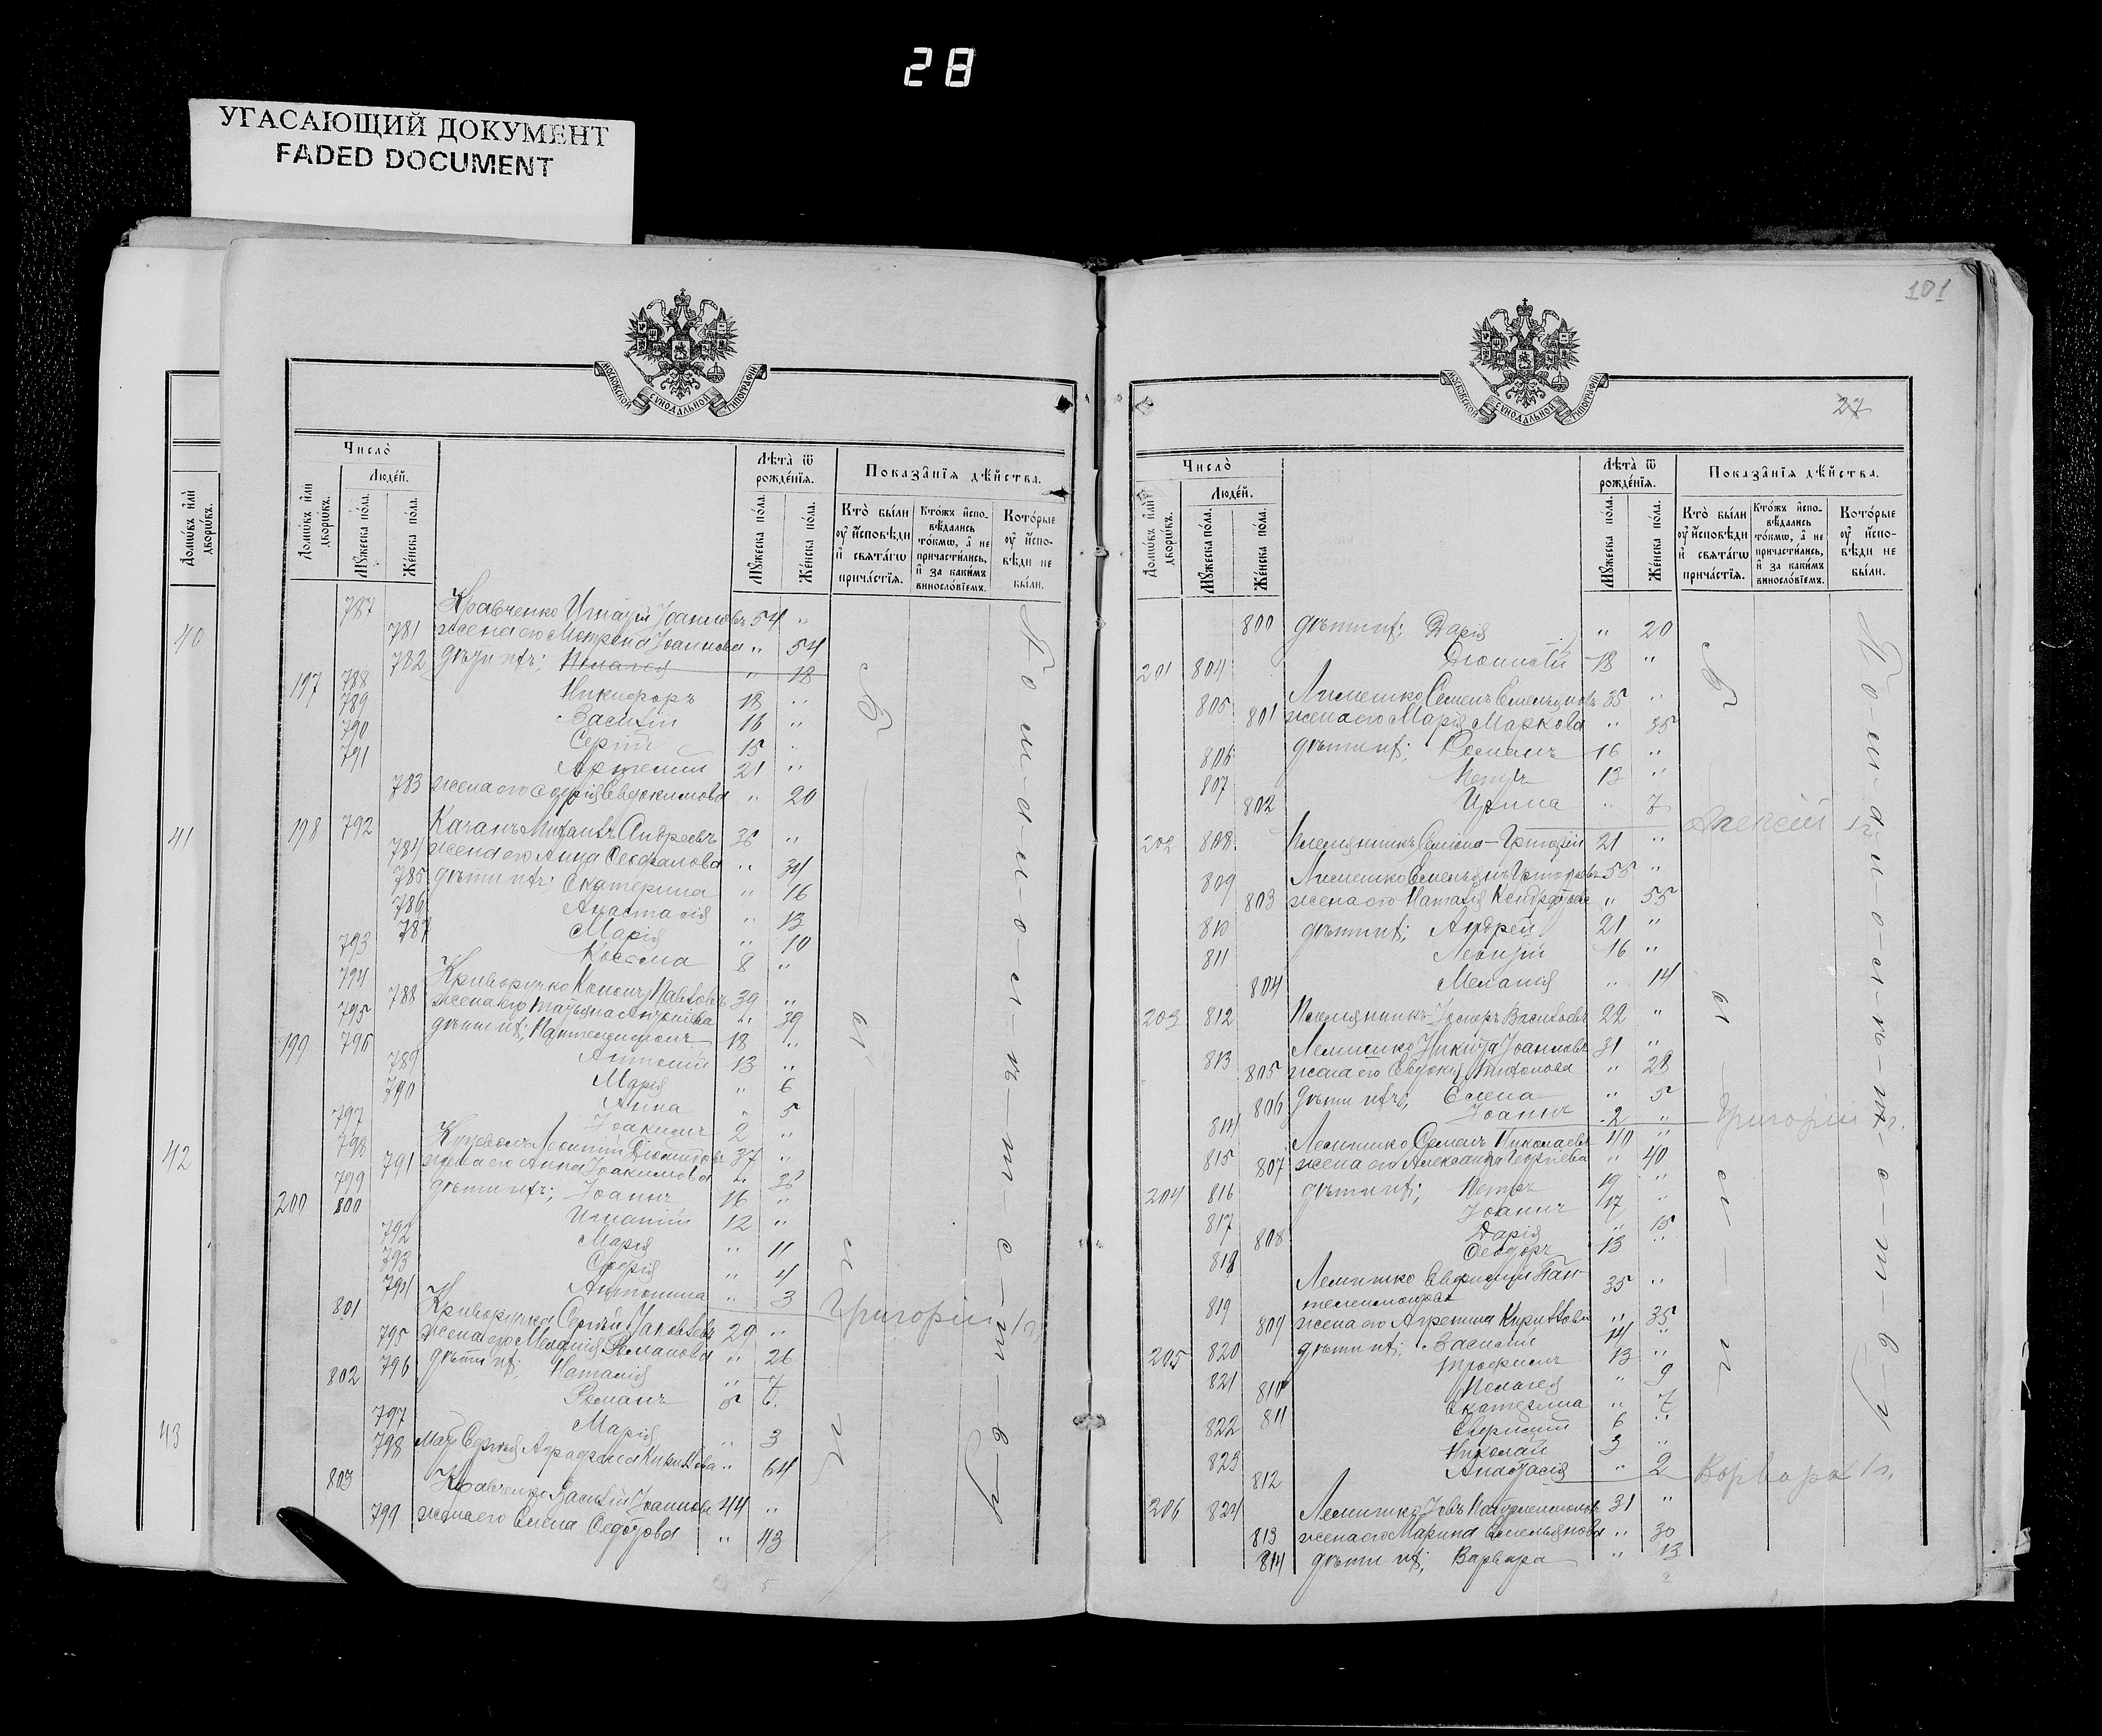 28
УГАСАЮЩИЙ ДОКУМЕНТ
FADED DOCUMENT
Домѡвъ и҆лѝ дворѡвъ.
40
41
42
43
МОСКОВСКОЙ СѴНОДАЛЬНОЙ ТИПОГРАФІИ
Число̀
Людей.
Лѣта̀ ѿ рожде́нїѧ.
Показа̑нїѧ дѣ́йства.
Домѡвъ и҆лѝ дворѡвъ.
Мꙋ́жеска по́ла.
Же́нска по́ла.
Мꙋ́жеска по́ла.
Же́нска по́ла.
Кто̀ бы́ли ᲂу҆ и҆́сповѣди и҆ свѧта́гѡ прича́стїѧ.
Кто́жъ и҆спо-вѣ́дались то́кмѡ, а҆ не причасти́лись, и҆ за каки́мъ винослове́мъ.
Кото́рые ᲂу҆ и҆́спо-вѣди не бы́ли.
787 Кравченко Игнатій Іоанновъ 54 "
781 жена его Мотрона Іоаннова " 54
782 дѣти ихъ: Пелагея " 18
197 788 Никифоръ 18 "
789 Василій 16 "
790 Сергій 15 "
791 Артемій 21 "
783 жена его Софія Евдокимова " 20
198 792 Качанъ Михаилъ Андреевъ 36 "
784 жена его Анна Феофилова " 34
785 дѣти ихъ: Екатерина " 16
786 Анастасія " 13
787 Марія " 10
793 Косьма 8 "
794 Криворучко Кононъ Павловъ 39 "
788 жена его Татьяна Антонова " 39
795 дѣти ихъ: Пантелеимонъ 18 "
199 796 Антоній 13 "
789 Марія " 6
790 Анна " 5
797 Іоакимъ 2 "
798 Леонтій 37 "
791 жена его Анна Іоакимова " 36
799 дѣти ихъ: Іоаннъ 16 "
200 800 Игнатій 12 "
792 Марія " 11
793 Софія " 4
794 Антонина " 3
Григорій 1 г.
801 Криворучко Сергѣй Яковлевъ 29 "
795 жена его Меланія Романова " 26
796 дѣти ихъ: Наталія " 7
802 Романъ 5
797 Марія " 3
798 Мать Сергѣя Аграфена Кирилова " 64
803 Кравченко Василій Іоанновъ 44 "
799 жена его Елена Федотова " 43
Б
ы
л
и
П о ш а л о с т и
101
МОСКОВСКОЙ СѴНОДАЛЬНОЙ ТИПОГРАФІИ
27
Число̀
Людей.
Лѣта̀ ѿ рожде́нїѧ.
Показа̑нїѧ дѣ́йства.
Домѡвъ и҆лѝ дворѡвъ.
Мꙋ́жеска по́ла.
Же́нска по́ла.
Мꙋ́жеска по́ла.
Же́нска по́ла.
Кто̀ бы́ли ᲂу҆ и҆́сповѣди и҆ свѧта́гѡ прича́стїѧ.
Кто́жъ и҆спо-вѣ́дались то́кмѡ, а҆ не причасти́лись, и҆ за каки́мъ винослове́мъ.
Кото́рые ᲂу҆ и҆́спо-вѣди не бы́ли.
800 дѣти ихъ: Дарія " 20
201 804 Діонисій 18 "
805 Лемешко Семенъ Емельяновъ 35 "
801 жена его Марія Маркова " 35
806 дѣти ихъ: Романъ 16 "
807 Петръ 13 "
802 Ирина " 7
Алексій 1 г.
202 808 Племянникъ Семена - Григорій 21 "
809 Лемешко Емельянъ Григорьевъ 55 "
803 жена его Наталія " 55
810 дѣти ихъ: Андрей 21 "
811 Леонтій 16 "
804 Меланія " 14
203 812 Племянникъ Василіевъ 22 "
813 Лемешко Никита Іоанновъ 31 "
805 жена его Евдокія " 28
806 дѣти ихъ: Елена " 5
814 Іоаннъ 2 "
Григорій 1 г.
815 Лемешко Семенъ Николаевъ 40 "
807 жена его Александра Георгіева " 40
204 816 дѣти ихъ: Петръ 19 "
817 Іоаннъ 17 "
808 Дарія " 15
818 Феодоръ 13 "
819 Лемешко Евфимій Пантелеимоновъ 35 "
809 жена его Агрепина Кирилова " 35
205 820 дѣти ихъ: Василій 14 "
821 Трофимъ 13 "
810 Пелагея " 9
811 Екатерина " 7
822 Евфимій 6 "
823 Николай 3 "
812 Анастасія " 2
Варвара 1 г.
206 824 Лемешко Іовъ Пантелеимоновъ 31 "
813 жена его Марина Емельянова " 30
814 дѣти ихъ: Варвара " 13
Б
ы
л
и